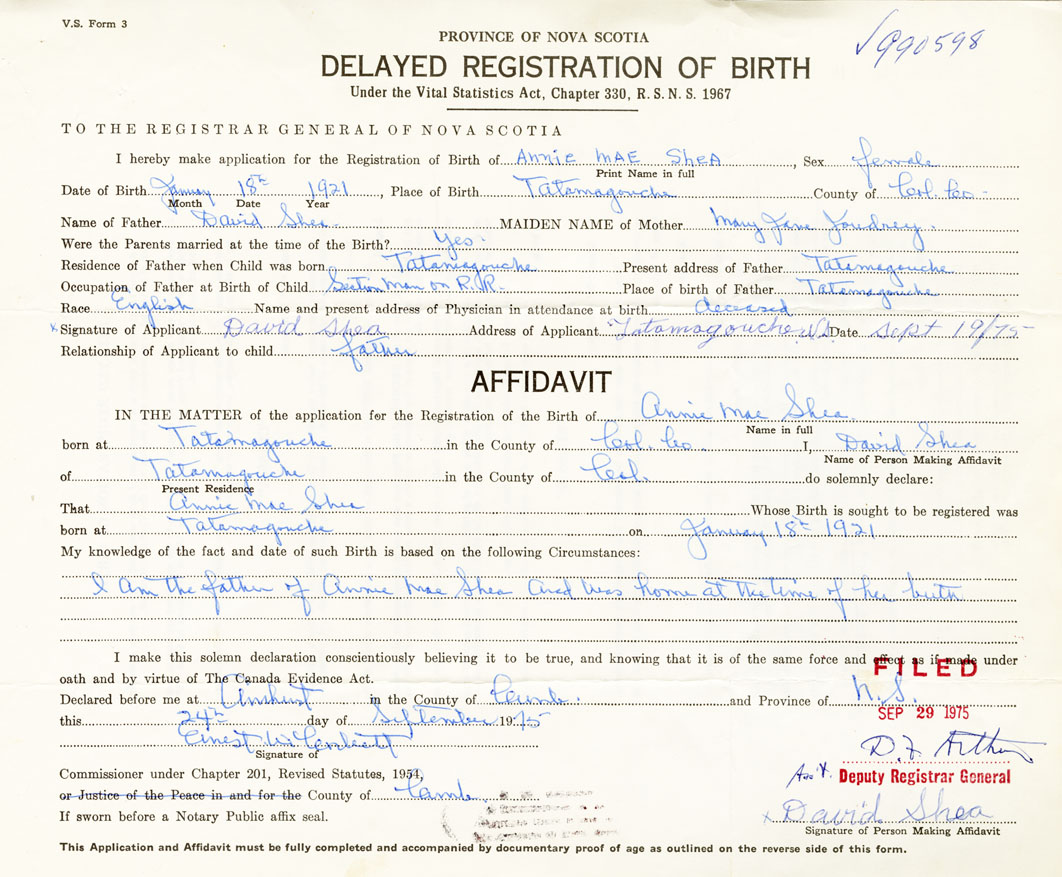 V.S. Form 3
990598
PROVINCE OF NOVA SCOTIA
DELAYED REGISTRATION OF BIRTH
Under the Vital Statistics Act, Chapter 330, R.S.N.S. 1967
TO THE REGISTRAR GENERAL OF NOVA SCOTIA
I hereby make application for the Registration of Birth of Annie Mae Shea, Sex female
Print Name in full
Date of Birth January 18th 1921, Place of Birth Tatamagouche County of Col. Co.
Month Date Year
Name of Father David Shea. MAIDEN NAME of Mother Mary Jane Joudrey.
Were the Parents married at the time of the Birth? Yes.
Residence of Father when Child was born Tatamagouche Present address of Father Tatamagouche
Occupation of Father at Birth of Child Section Man on R.R. Place of birth of Father Tatamagouche
Race English Name and present address of Physician in attendance at birth deceased
x Signature of Applicant David Shea Address of Applicant Tatamagouche N.S. Date Sept 19/75
Relationship of Applicant to child father
AFFIDAVIT
IN THE MATTER of the application fer the Registration of the Birth of Annie Mae Shea.
Name in full
born at Tatamagouche in the County of Col. Co. I, David Shea
Name of Person Making Affidavit
of Tatamagouche in the County of Col. do solemnly declare:
Present Residence
That Annie Mae Shea Whose Birth is sought to be registered was
born at Tatamagouche on January 18th 1921
My knowledge of the fact and date of such Birth is based on the following Circumstances:
I am the father of Annie Mae Shea and was home at the time of her birth
I make this solemn declaration conscientiously believing it to be true, and knowing that it is of the same force and effect as if made under
FILED
oath and by virtue of The Canada Evidence Act.
Declared before me at Amherst in the County of Cumb. and Province of N.S.
this 24th day of September 1975
SEP 29 1975
Ernest W.
Signature of
D.F. Arthur
Commissioner under Chapter 201, Revised Statutes, 1954,
Ass't. Deputy Registrar General
or Justice of the Peace in and for the County of Cumb.
x David Shea
If sworn before a Notary Public affix seal.
Signature of Person Making Affidavit
This Application and Affidavit must be fully completed and accompanied by documentary proof of age as outlined on the reverse side of this form.